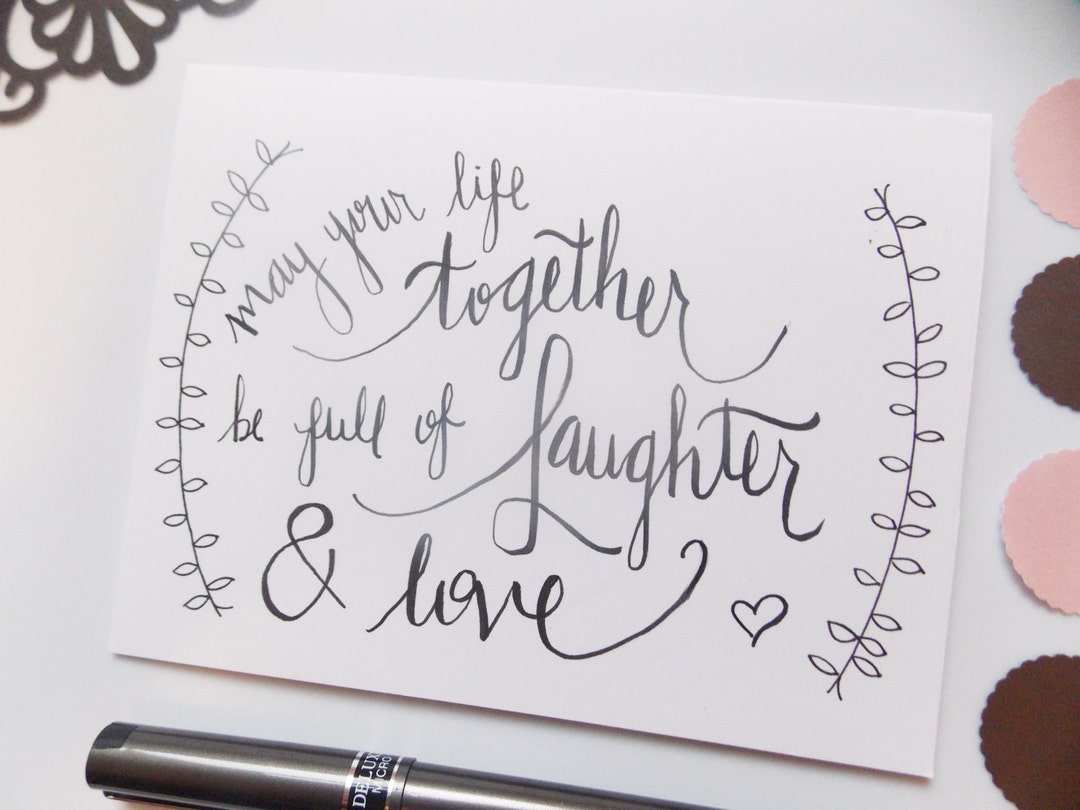 may your life
together
be full of laughter
& love
DELUXE
MICRO